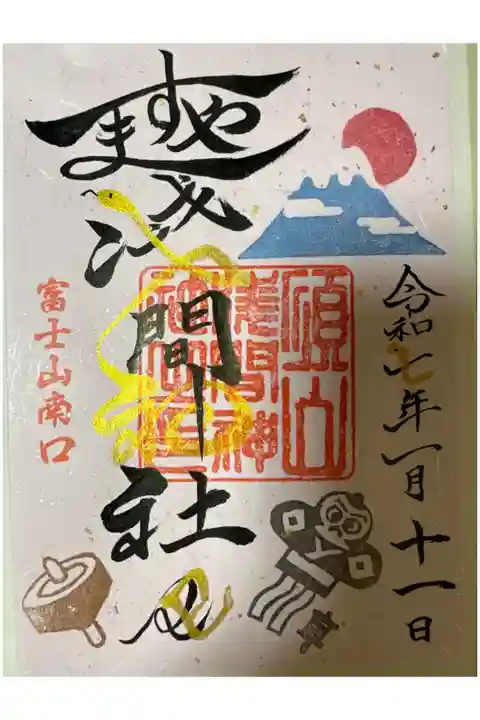 令和七年一月十一日
すやま
浅間神社
須山
浅間神
富士山南口